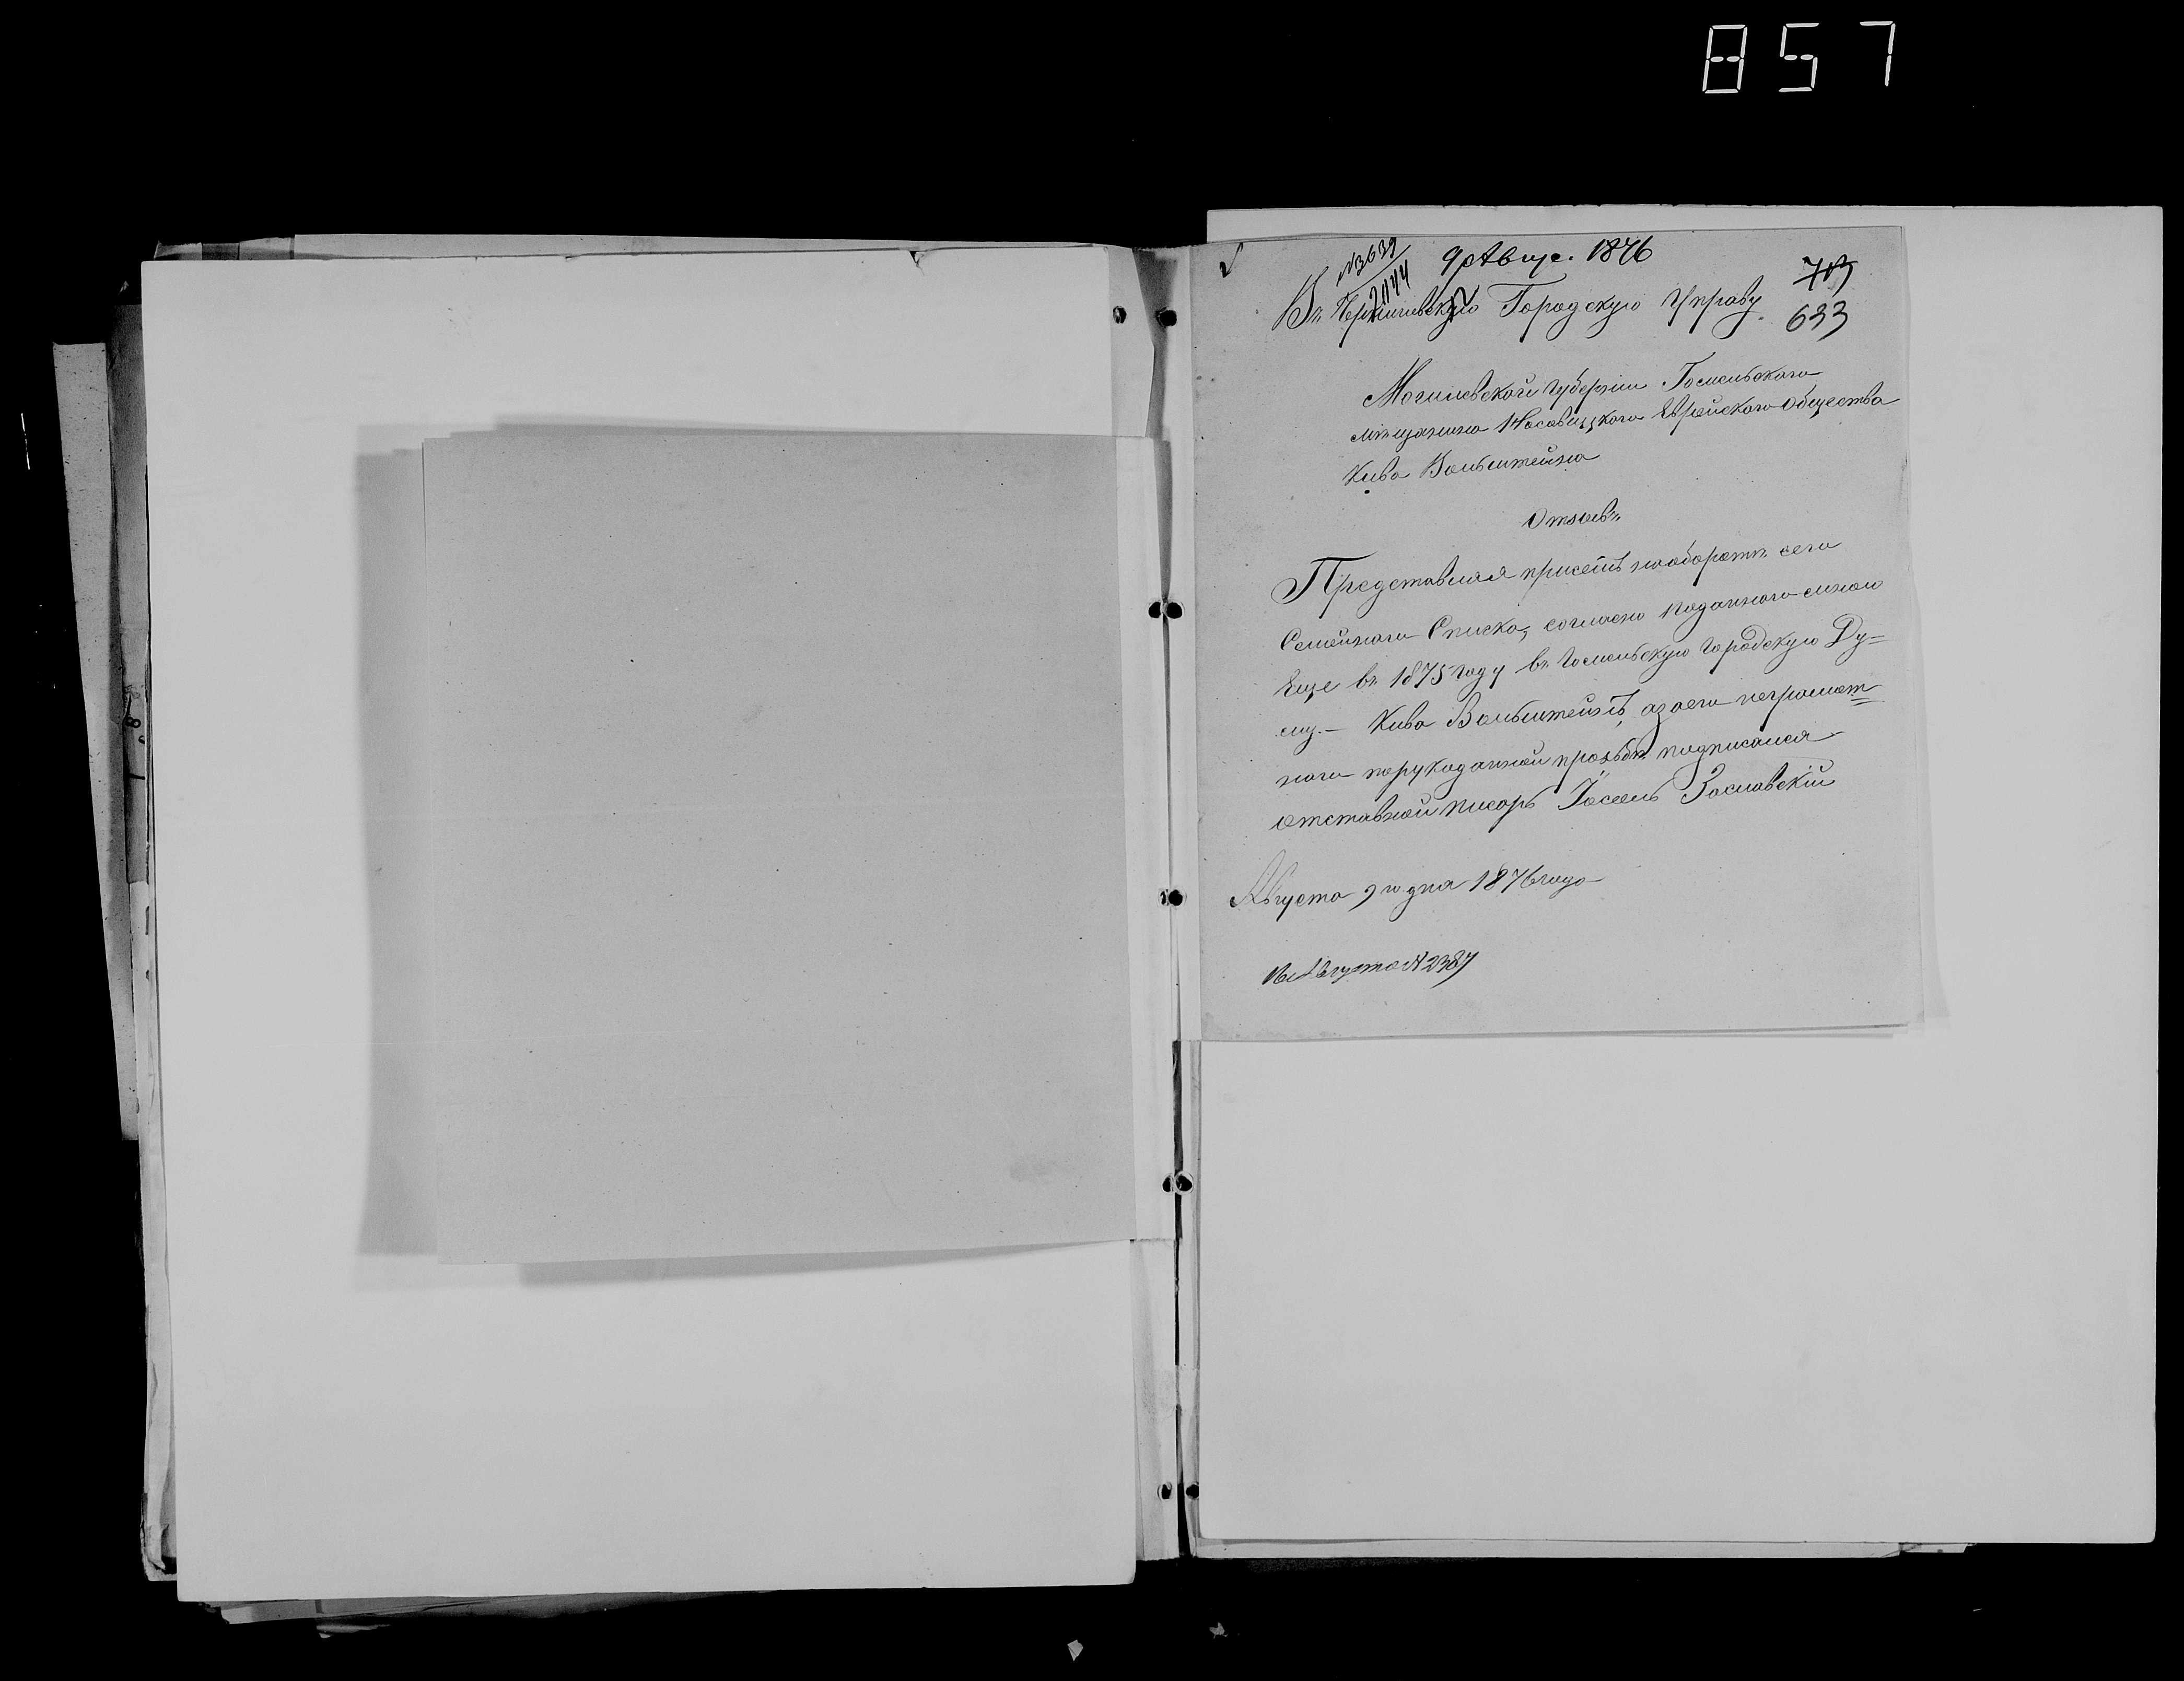 857
№ 3639
2144
9 Авгус. 1876
713
633
Въ Черниговскую Городскую Управу.
Могилевской губернии Гомельского
мѣщанина Носовицкого Еврейского Общества
Кива Вольштейна
Отзывъ
Представляя присемъ наоборотѣ сего
Семейного Списка, согласно поданного мною
Еще въ 1875 году въ Гомельскую Городскую Ду=
му. — Кива Вольштейнъ, азаего неграмот=
ного порукоданной прозьбѣ подписался
отставной писарь Іосель Заславскій
Августа 9 го дня 1876 года
16 Августа № 2387